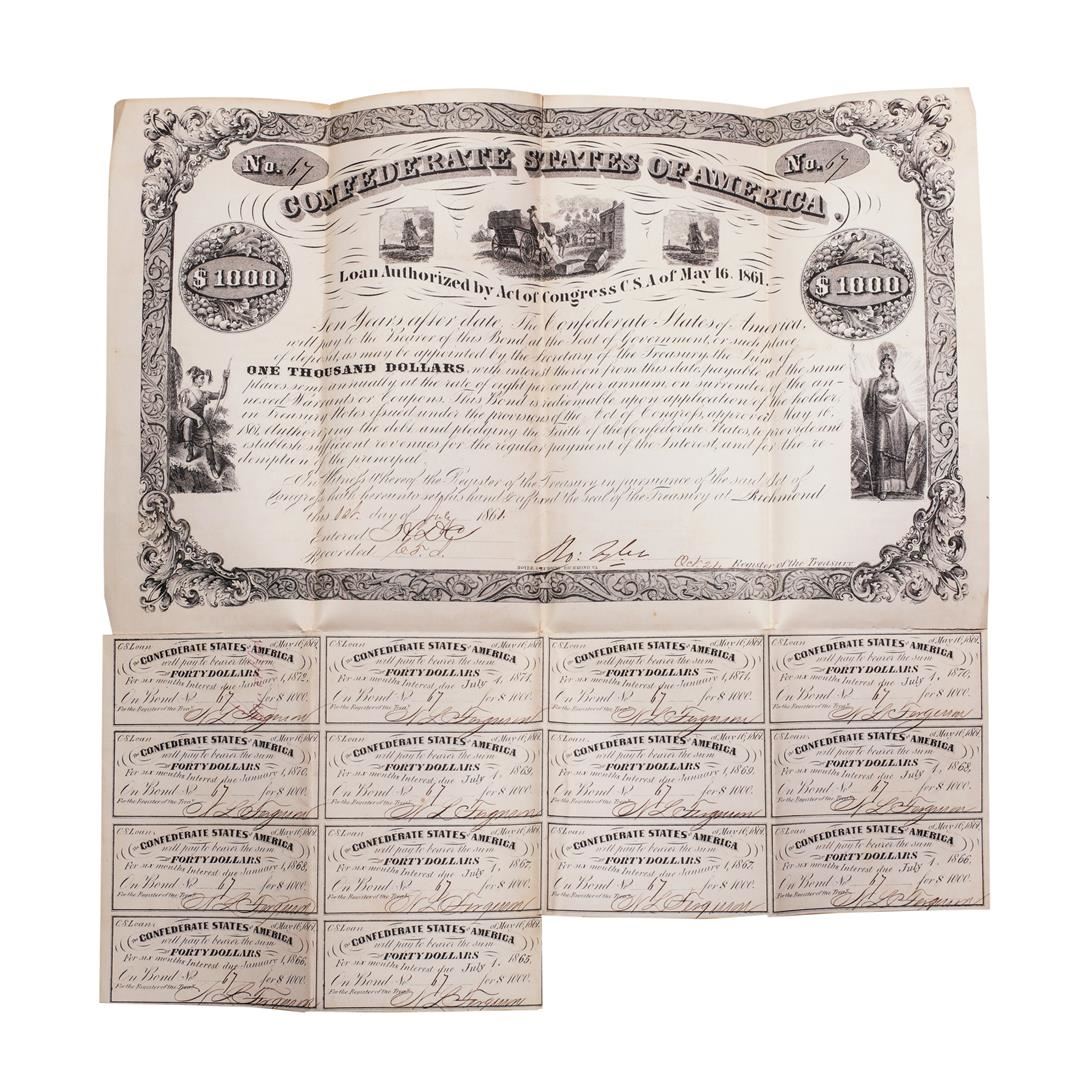 No. 67
CONFEDERATE STATES OF AMERICA.
No. 67
$ 1000
Loan Authorized by Act of Congress C S A of May 16. 1861.
$ 1000
Ten Years after date, The Confederate States of America,
will pay to the Bearer of this Bond at the Seat of Government, or such place
of deposit, as may be appointed by the Secretary of the Treasury, the Sum of
ONE THOUSAND DOLLARS with interest thereon from this date, payable at the same
places semi annually at the rate of eight per cent per annum on surrender of the an-
nexed Warrants or Coupons. This Bond is redeemable upon application of the holder,
in Treasury Notes issued under the provisions of the Act of Congress, approved May 16,
1861. Authorizing the debt and pledging the Faith of the Confederate States, to provide and
establish sufficient revenues for the regular payment of the Interest, and for the re-
demption of the principal.
In Witness whereof the Register of the Treasury in pursuance of the said Act of
Congress, hath hereunto set his hand & affixed the seal of the Treasury at Richmond
this day of July 1861.
Entered
Recorded
Ro: Tyler
Register of the Treasury
RICHMOND VA
C S Loan of May 16, 1861.
The CONFEDERATE STATES of AMERICA
will pay to bearer the sum
FORTY DOLLARS
For six months Interest due January 1, 1872.
On Bond No 67 for $ 1000.
For the Register of the Treasy
N L Ferguson
C S Loan of May 16, 1861.
The CONFEDERATE STATES of AMERICA
will pay to bearer the sum
FORTY DOLLARS
For six months Interest due July 1, 1871.
On Bond No 67 for $ 1000.
For the Register of the Treasy
N L Ferguson
C S Loan of May 16, 1861.
The CONFEDERATE STATES of AMERICA
will pay to bearer the sum
FORTY DOLLARS
For six months Interest due January 1, 1871.
On Bond No 67 for $ 1000.
For the Register of the Treasy
N L Ferguson
C S Loan of May 16, 1861.
The CONFEDERATE STATES of AMERICA
will pay to bearer the sum
FORTY DOLLARS
For six months Interest due July 1, 1870.
On Bond No 67 for $ 1000.
For the Register of the Treasy
N L Ferguson
C S Loan of May 16, 1861.
The CONFEDERATE STATES of AMERICA
will pay to bearer the sum
FORTY DOLLARS
For six months Interest due January 1, 1870.
On Bond No 67 for $ 1000.
For the Register of the Treasy
N L Ferguson
C S Loan of May 16, 1861.
The CONFEDERATE STATES of AMERICA
will pay to bearer the sum
FORTY DOLLARS
For six months Interest due July 1, 1869.
On Bond No 67 for $ 1000.
For the Register of the Treasy
N L Ferguson
C S Loan of May 16, 1861.
The CONFEDERATE STATES of AMERICA
will pay to bearer the sum
FORTY DOLLARS
For six months Interest due January 1, 1869.
On Bond No 67 for $ 1000.
For the Register of the Treasy
N L Ferguson
C S Loan of May 16, 1861.
The CONFEDERATE STATES of AMERICA
will pay to bearer the sum
FORTY DOLLARS
For six months Interest due July 1, 1868.
On Bond No 67 for $ 1000.
For the Register of the Treasy
N L Ferguson
C S Loan of May 16, 1861.
The CONFEDERATE STATES of AMERICA
will pay to bearer the sum
FORTY DOLLARS
For six months Interest due January 1, 1868.
On Bond No 67 for $ 1000.
For the Register of the Treasy
N L Ferguson
C S Loan of May 16, 1861.
The CONFEDERATE STATES of AMERICA
will pay to bearer the sum
FORTY DOLLARS
For six months Interest due July 1, 1867.
On Bond No 67 for $ 1000.
For the Register of the Treasy
N L Ferguson
C S Loan of May 16, 1861.
The CONFEDERATE STATES of AMERICA
will pay to bearer the sum
FORTY DOLLARS
For six months Interest due January 1, 1867.
On Bond No 67 for $ 1000.
For the Register of the Treasy
N L Ferguson
C S Loan of May 16, 1861.
The CONFEDERATE STATES of AMERICA
will pay to bearer the sum
FORTY DOLLARS
For six months Interest due July 1, 1866.
On Bond No 67 for $ 1000.
For the Register of the Treasy
N L Ferguson
C S Loan of May 16, 1861.
The CONFEDERATE STATES of AMERICA
will pay to bearer the sum
FORTY DOLLARS
For six months Interest due January 1, 1866.
On Bond No 67 for $ 1000.
For the Register of the Treasy
N L Ferguson
C S Loan of May 16, 1861.
The CONFEDERATE STATES of AMERICA
will pay to bearer the sum
FORTY DOLLARS
For six months Interest due July 1, 1865.
On Bond No 67 for $ 1000.
For the Register of the Treasy
N L Ferguson